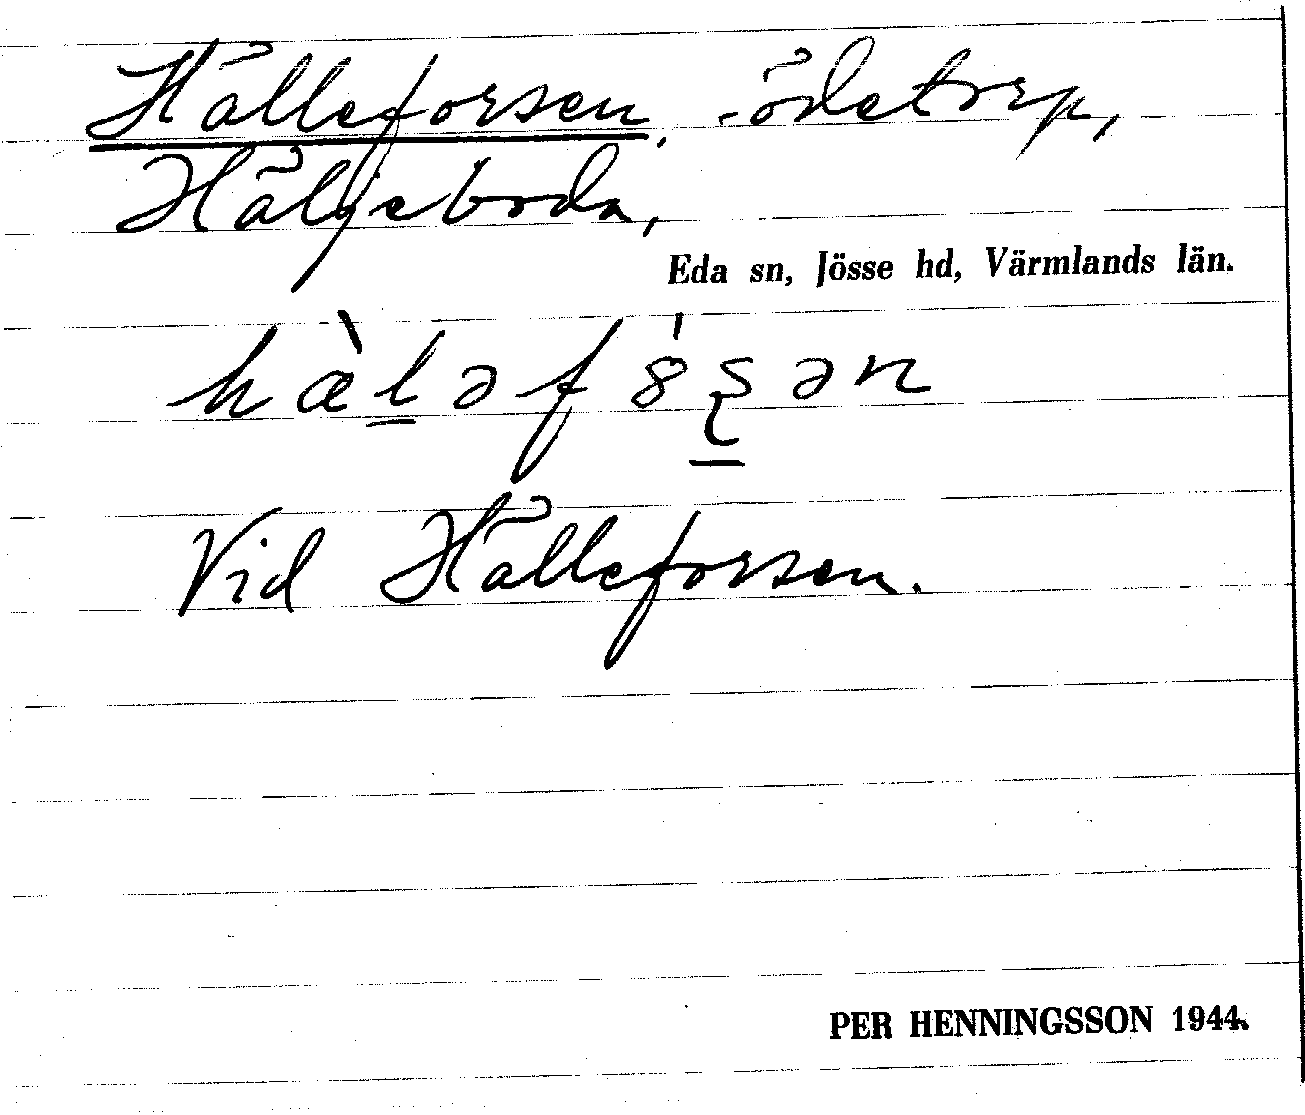 Hälleforsen, ödetorp,
Häljeboda,
Eda sn, Jösse hd, Värmlands län.
hæ̀l̲əfȣ́ʂ̲ən
Vid Hälleforsen.
PER HENNINGSSON 1944.